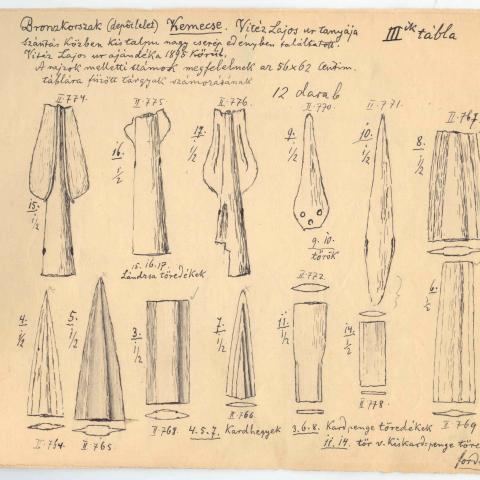 Bronzkorszak (depotlelet) Kemecse. Vitéz Lajos ur tanyája
szántás közben kis talpu nagy cserép edényben találtatott.
Vitéz Lajos ur ajándéka 1895 körül.
A rajzok melletti számok megfelelnek az 56x62 centim.
táblára füzött tárgyak számozásának
III ik tábla
12 darab
II.774.
II.775.
II.776.
II.770.
II.771.
II.767
15. 1/2
16. 1/2
17. 1/2
9. 1/2
10. 1/2
8. 1/2
15. 16. 17.
Lándzsa töredékek
9. 10.
török
II.772
4. 1/2
5. 1/2
3. 1/2
7. 1/2
11. 1/2
14. 1/2
6. 1/2
II.765
II.768
II.766
II.778.
II.769
4. 5. 7. Kardhegyek
3. 6. 8. Kardpenge töredékek
11. 14. tör v. Kiskardpenge töre